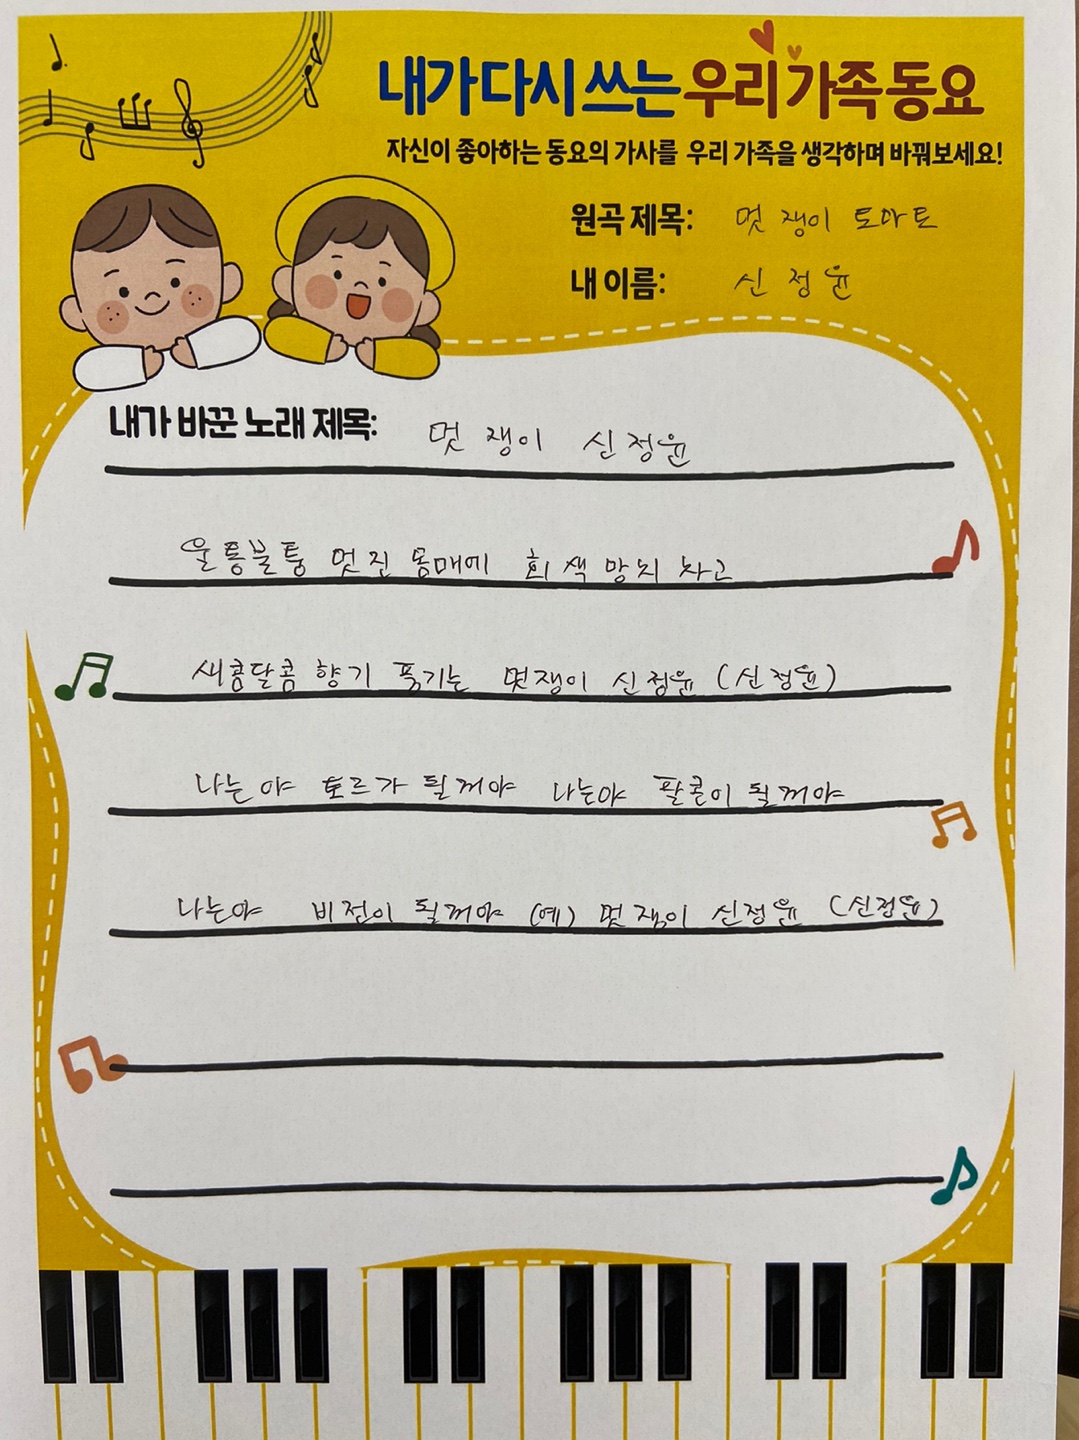 내가 다시 쓰는 우리 가족 동요
자신이 좋아하는 동요의 가사를 우리 가족을 생각하며 바꿔보세요!
원곡 제목: 멋쟁이 토마토
내 이름: 신정윤
내가 바꾼 노래 제목: 멋쟁이 신정윤
울퉁불퉁 멋진 몸매에 회색 망치 차고
새콤달콤 향기 풍기는 멋쟁이 신정윤 (신정윤)
나는야 토르가 될꺼야 나는야 팔콘이 될꺼야
나는야 비전이 될꺼야 (예) 멋쟁이 신정윤 (신정윤)